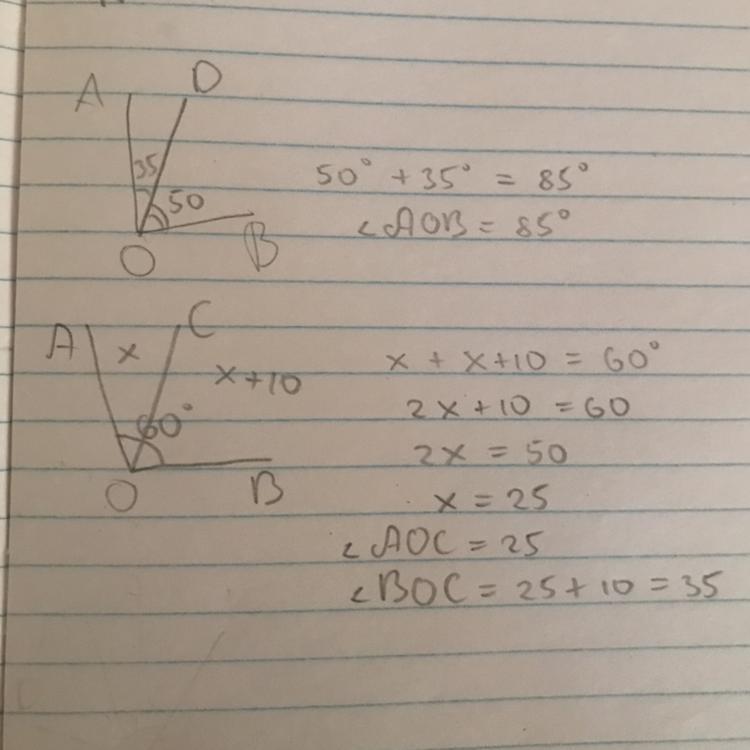 A D
35
50
O B
50° + 35° = 85°
∠AOB = 85°
A C
x
x+10
60°
O B
x + x+10 = 60°
2x+10 = 60
2x = 50
x = 25
∠AOC = 25
∠BOC = 25+10 = 35